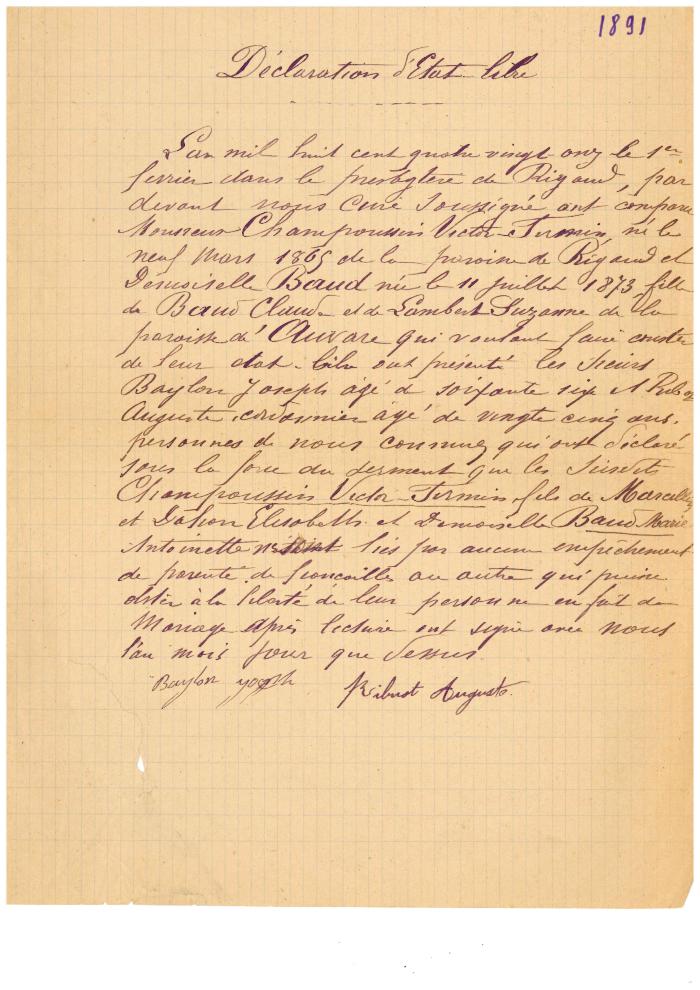 1891
Déclaration d'Etat-libre
L'an mil huit cent quatre vingt onze le 1er
fevrier dans le presbytere de Rigaud, par
devant nous curé soussigné ont comparu
Monsieur Champoussin Victor-Firmin, né le
neuf Mars 1865 de la paroisse de Rigaud et
Démoiselle Baud née le 11 juillet 1873, fille
de Baud Claude et de Lambert Suzanne de la
paroisse d'Auvare qui voulant faire conster
de leur etat-libre ont présenté les sieurs
Baylon Joseph agé de soixante six et
Auguste, cordonnier âgé de vingt cinq ans.
personnes de nous connues qui ont déclaré
sous la foi du serment que les susdits
Champoussin Victor-Firmin, fils de Marcellin
et Elisabeth et Demoiselle Baud Marie
Antoinette liés par aucun empêchement
de parenté de fiancailles ou autre qui puisse
ôter à la liberté de leur personne en fait de
Mariage après lecture ont signé avec nous
l'an mois jour que dessus.
Baylon joseph Ribuot Auguste.